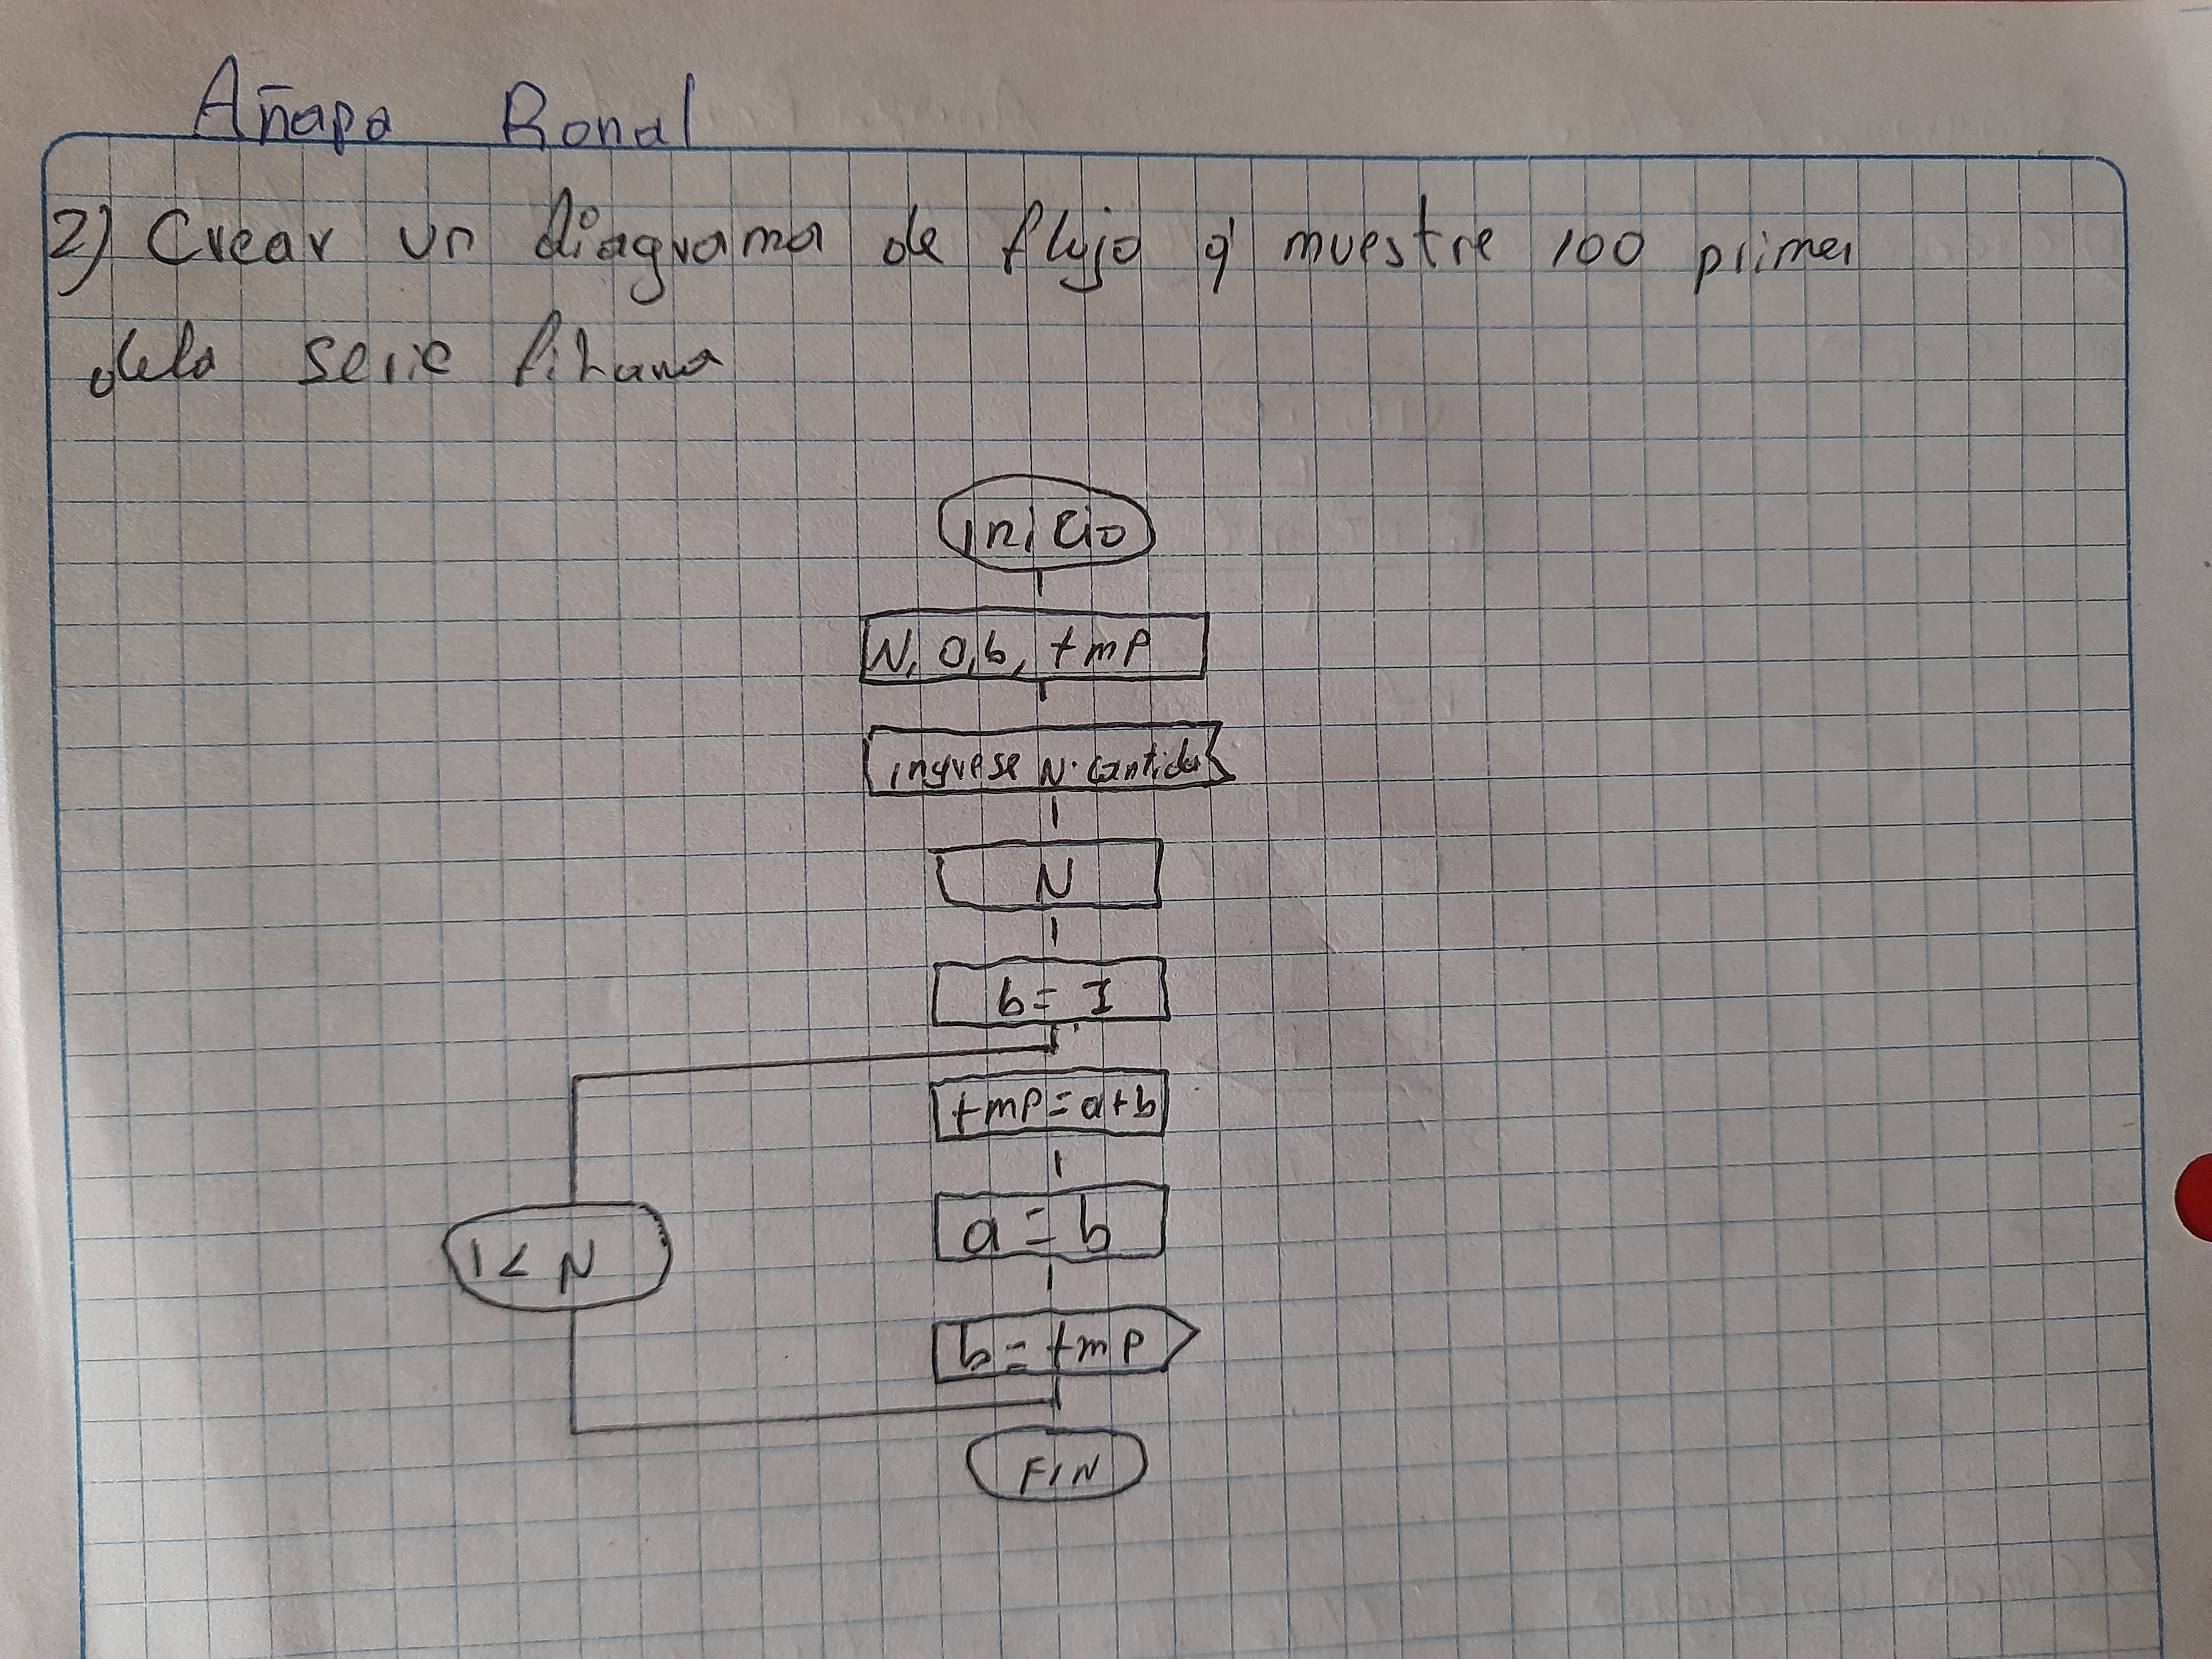 Añapa Bond
2) Crear un diagrama de flujo q' muestre 100 primer
dela serie
inicio
N, a, b, tmp
ingrese N. cantidad
N
b = 1
tmp = a+b
a = b
b = tmp
FIN
1 < N